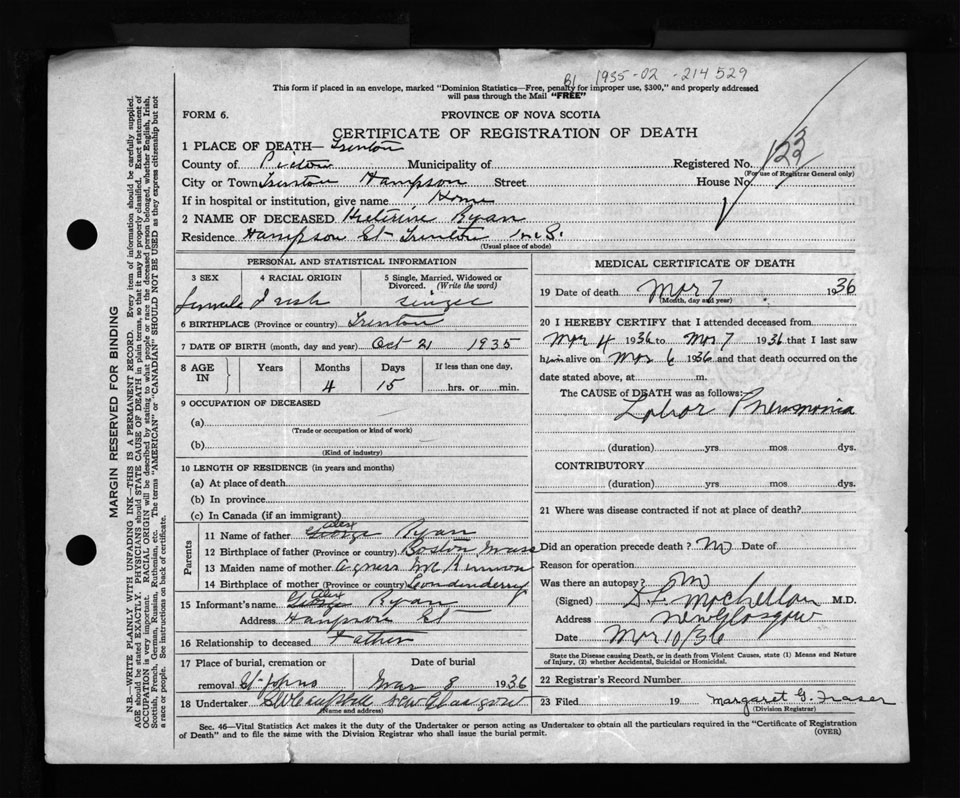 B1 1935-02-214529
This form if placed in an envelope, marked "Dominion Statistics—Free, penalty for improper use, $300," and properly addressed
will pass through the Mail "FREE"
FORM 6. PROVINCE OF NOVA SCOTIA
CERTIFICATE OF REGISTRATION OF DEATH
1 PLACE OF DEATH— Trenton
County of Pictou Municipality of Registered No.
(For use of Registrar General only)
City or Town Trenton Hampson Street House No.
If in hospital or institution, give name Home
2 NAME OF DECEASED Ryan
Residence Hampson St Trenton N.S.
(Usual place of abode)
PERSONAL AND STATISTICAL INFORMATION
3 SEX 4 RACIAL ORIGIN 5 Single, Married, Widowed or
Divorced. (Write the word)
female Irish single
6 BIRTHPLACE (Province or country) Trenton
7 DATE OF BIRTH (month, day and year) Oct 21 1935
8 AGE IN Years Months Days If less than one day,
4 15 hrs. or min.
9 OCCUPATION OF DECEASED
(a)
(Trade or occupation or kind of work)
(b)
(Kind of industry)
10 LENGTH OF RESIDENCE (in years and months)
(a) At place of death
(b) In province
(c) In Canada (if an immigrant)
Parents
11 Name of father George Alex Ryan
12 Birthplace of father (Province or country) Boston Mass
13 Maiden name of mother Agness McKinnon
14 Birthplace of mother (Province or country) Londonderry
15 Informant's name George Alex Ryan
Address Hampson St
16 Relationship to deceased Father
17 Place of burial, cremation or Date of burial
removal St Johns Mar 8 1936
18 Undertaker New Glasgow
(Name and address)
MEDICAL CERTIFICATE OF DEATH
19 Date of death Mar 7 1936
(Month, day and year)
20 I HEREBY CERTIFY that I attended deceased from
Mar 4 1936 to Mar 7 1936 that I last saw
him alive on Mar 6 1936 and that death occurred on the
date stated above, at m.
The CAUSE of DEATH was as follows:
Lobar Pneumonia
(duration) yrs mos dys.
CONTRIBUTORY
(duration) yrs mos dys.
21 Where was disease contracted if not at place of death?
Did an operation precede death? No Date of
Reason for operation
Was there an autopsy? No
(Signed) M.D.
Address New Glasgow
Date Mar 10/36
State the Disease causing Death, or in death from Violent Causes, state (1) Means and Nature
of Injury, (2) whether Accidental, Suicidal or Homicidal.
22 Registrar's Record Number
23 Filed 19 Margaret G. Fraser
(Division Registrar)
Sec. 46—Vital Statistics Act makes it the duty of the Undertaker or person acting as Undertaker to obtain all the particulars required in the "Certificate of Registration
of Death" and to file the same with the Division Registrar who shall issue the burial permit. (OVER)
MARGIN RESERVED FOR BINDING
N.B.—WRITE PLAINLY WITH UNFADING INK—THIS IS A PERMANENT RECORD. Every item of information should be carefully supplied.
AGE should be stated EXACTLY. PHYSICIANS should STATE CAUSE OF DEATH in plain terms, so that it may be properly classified. Exact statement of
OCCUPATION is very important. RACIAL ORIGIN will be described by stating to what people or race the deceased person belonged, whether English, Irish,
Scottish, French, German, Russian, Ruthenian, etc. The terms "AMERICAN" or "CANADIAN" SHOULD NOT BE USED as they express citizenship but not
a race or people. See instructions on back of certificate.